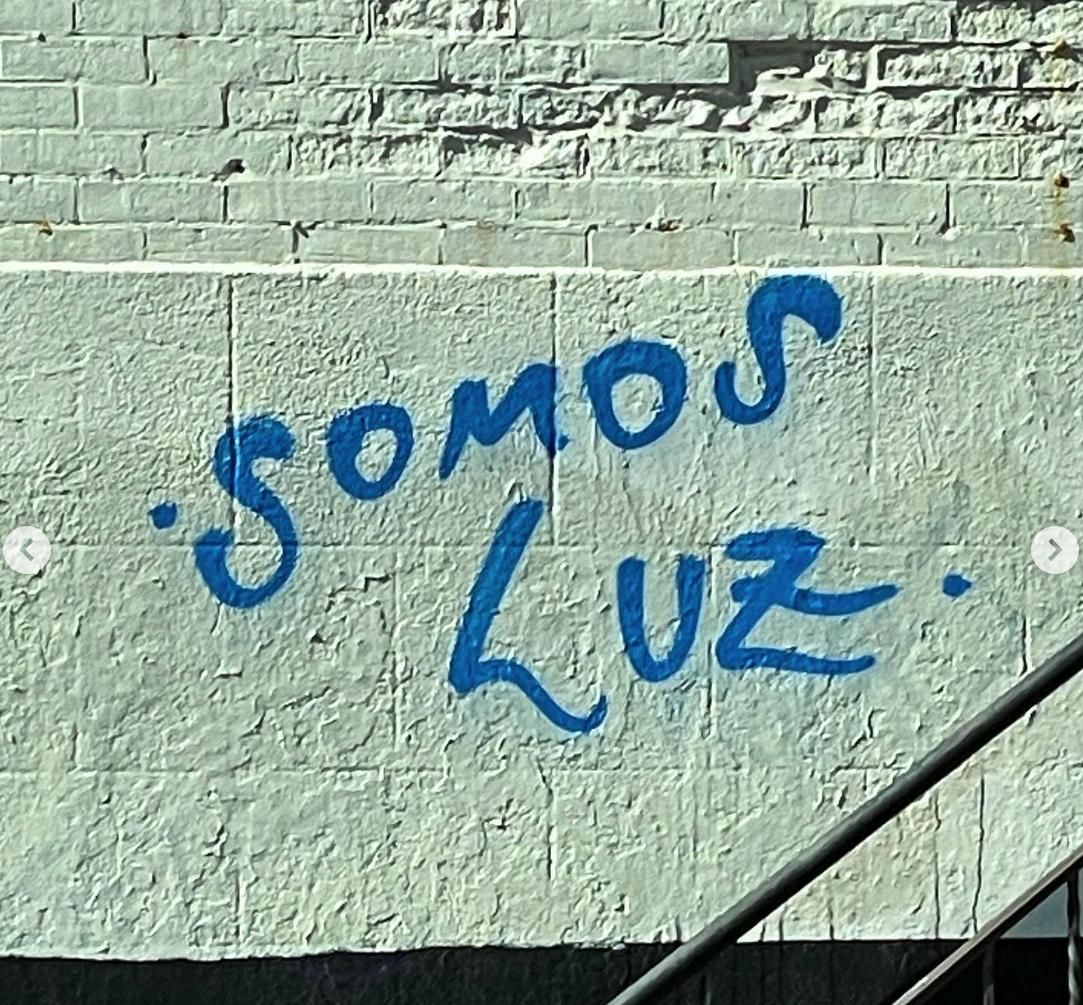 . SOMOS
LUZ .